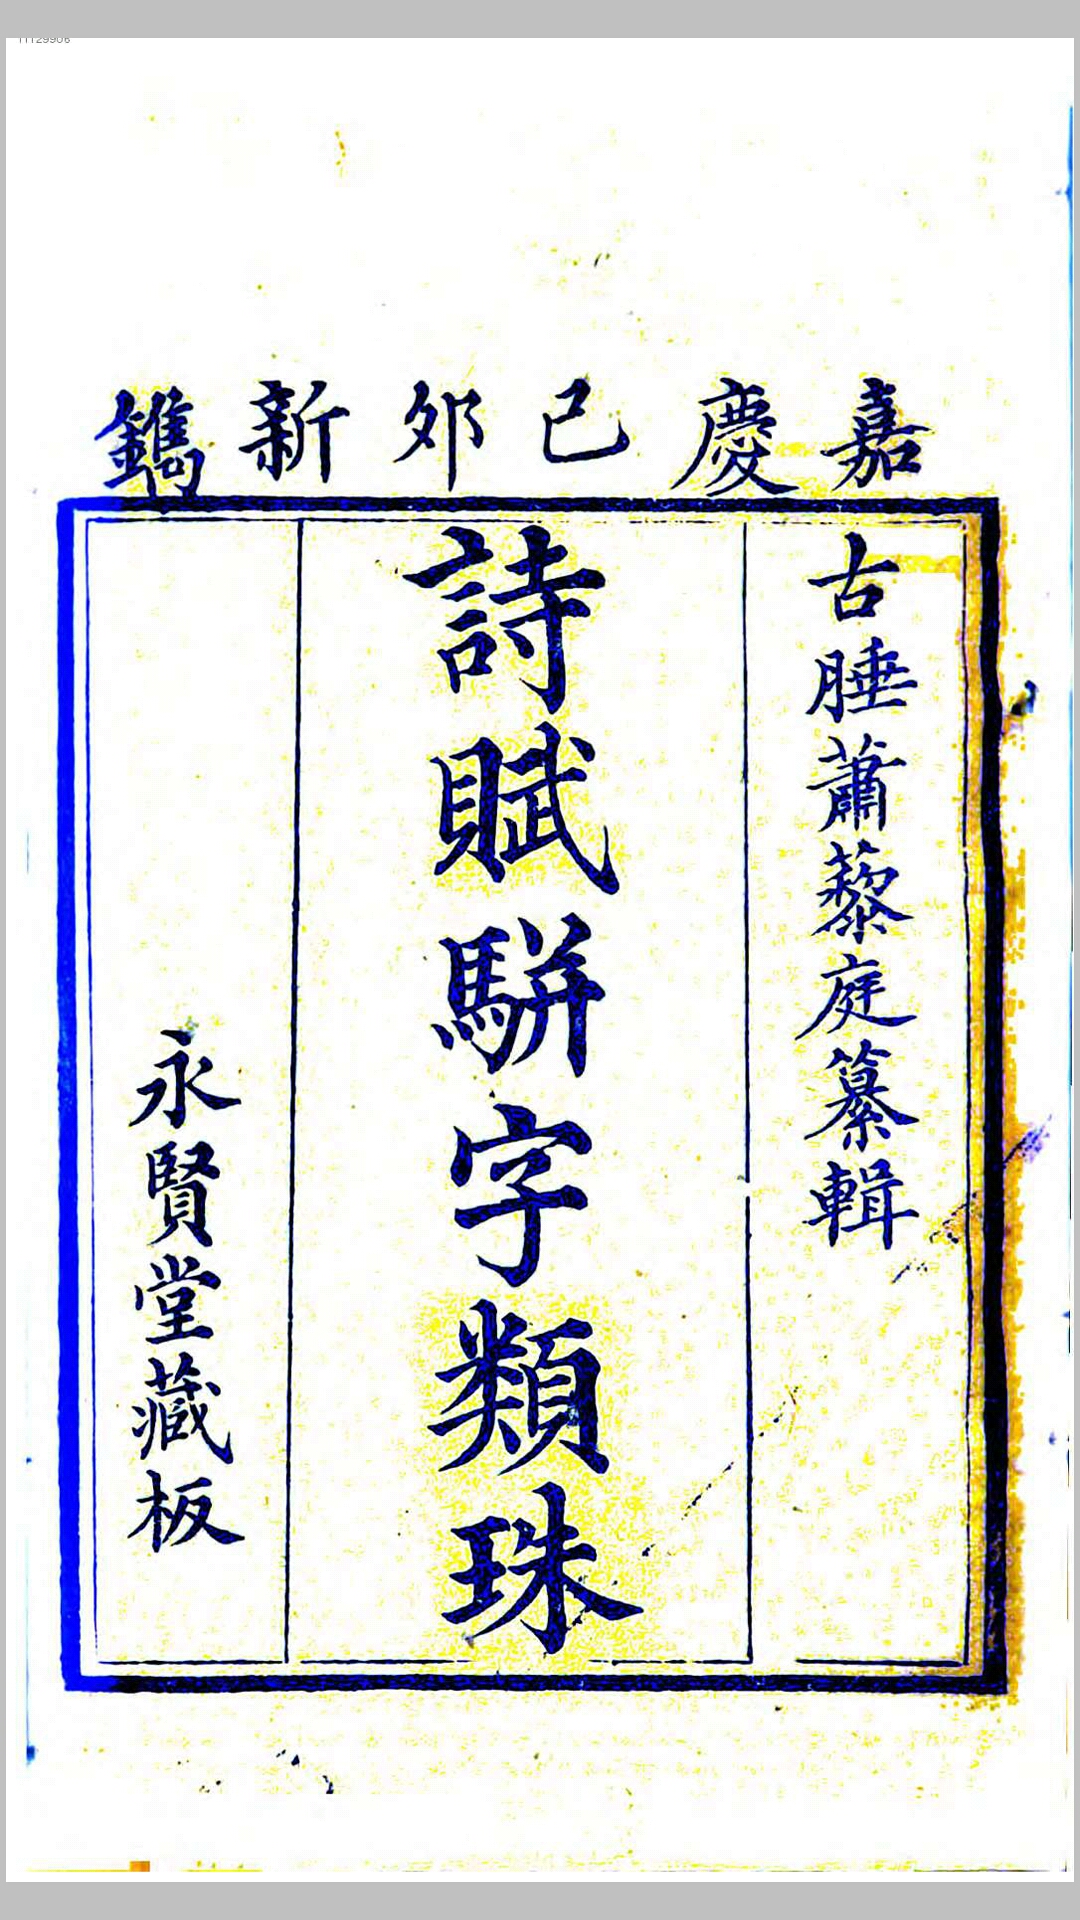 嘉慶己夘新鐫
古腄蕭藜庭纂輯
詩賦駢字類珠
永賢堂藏板